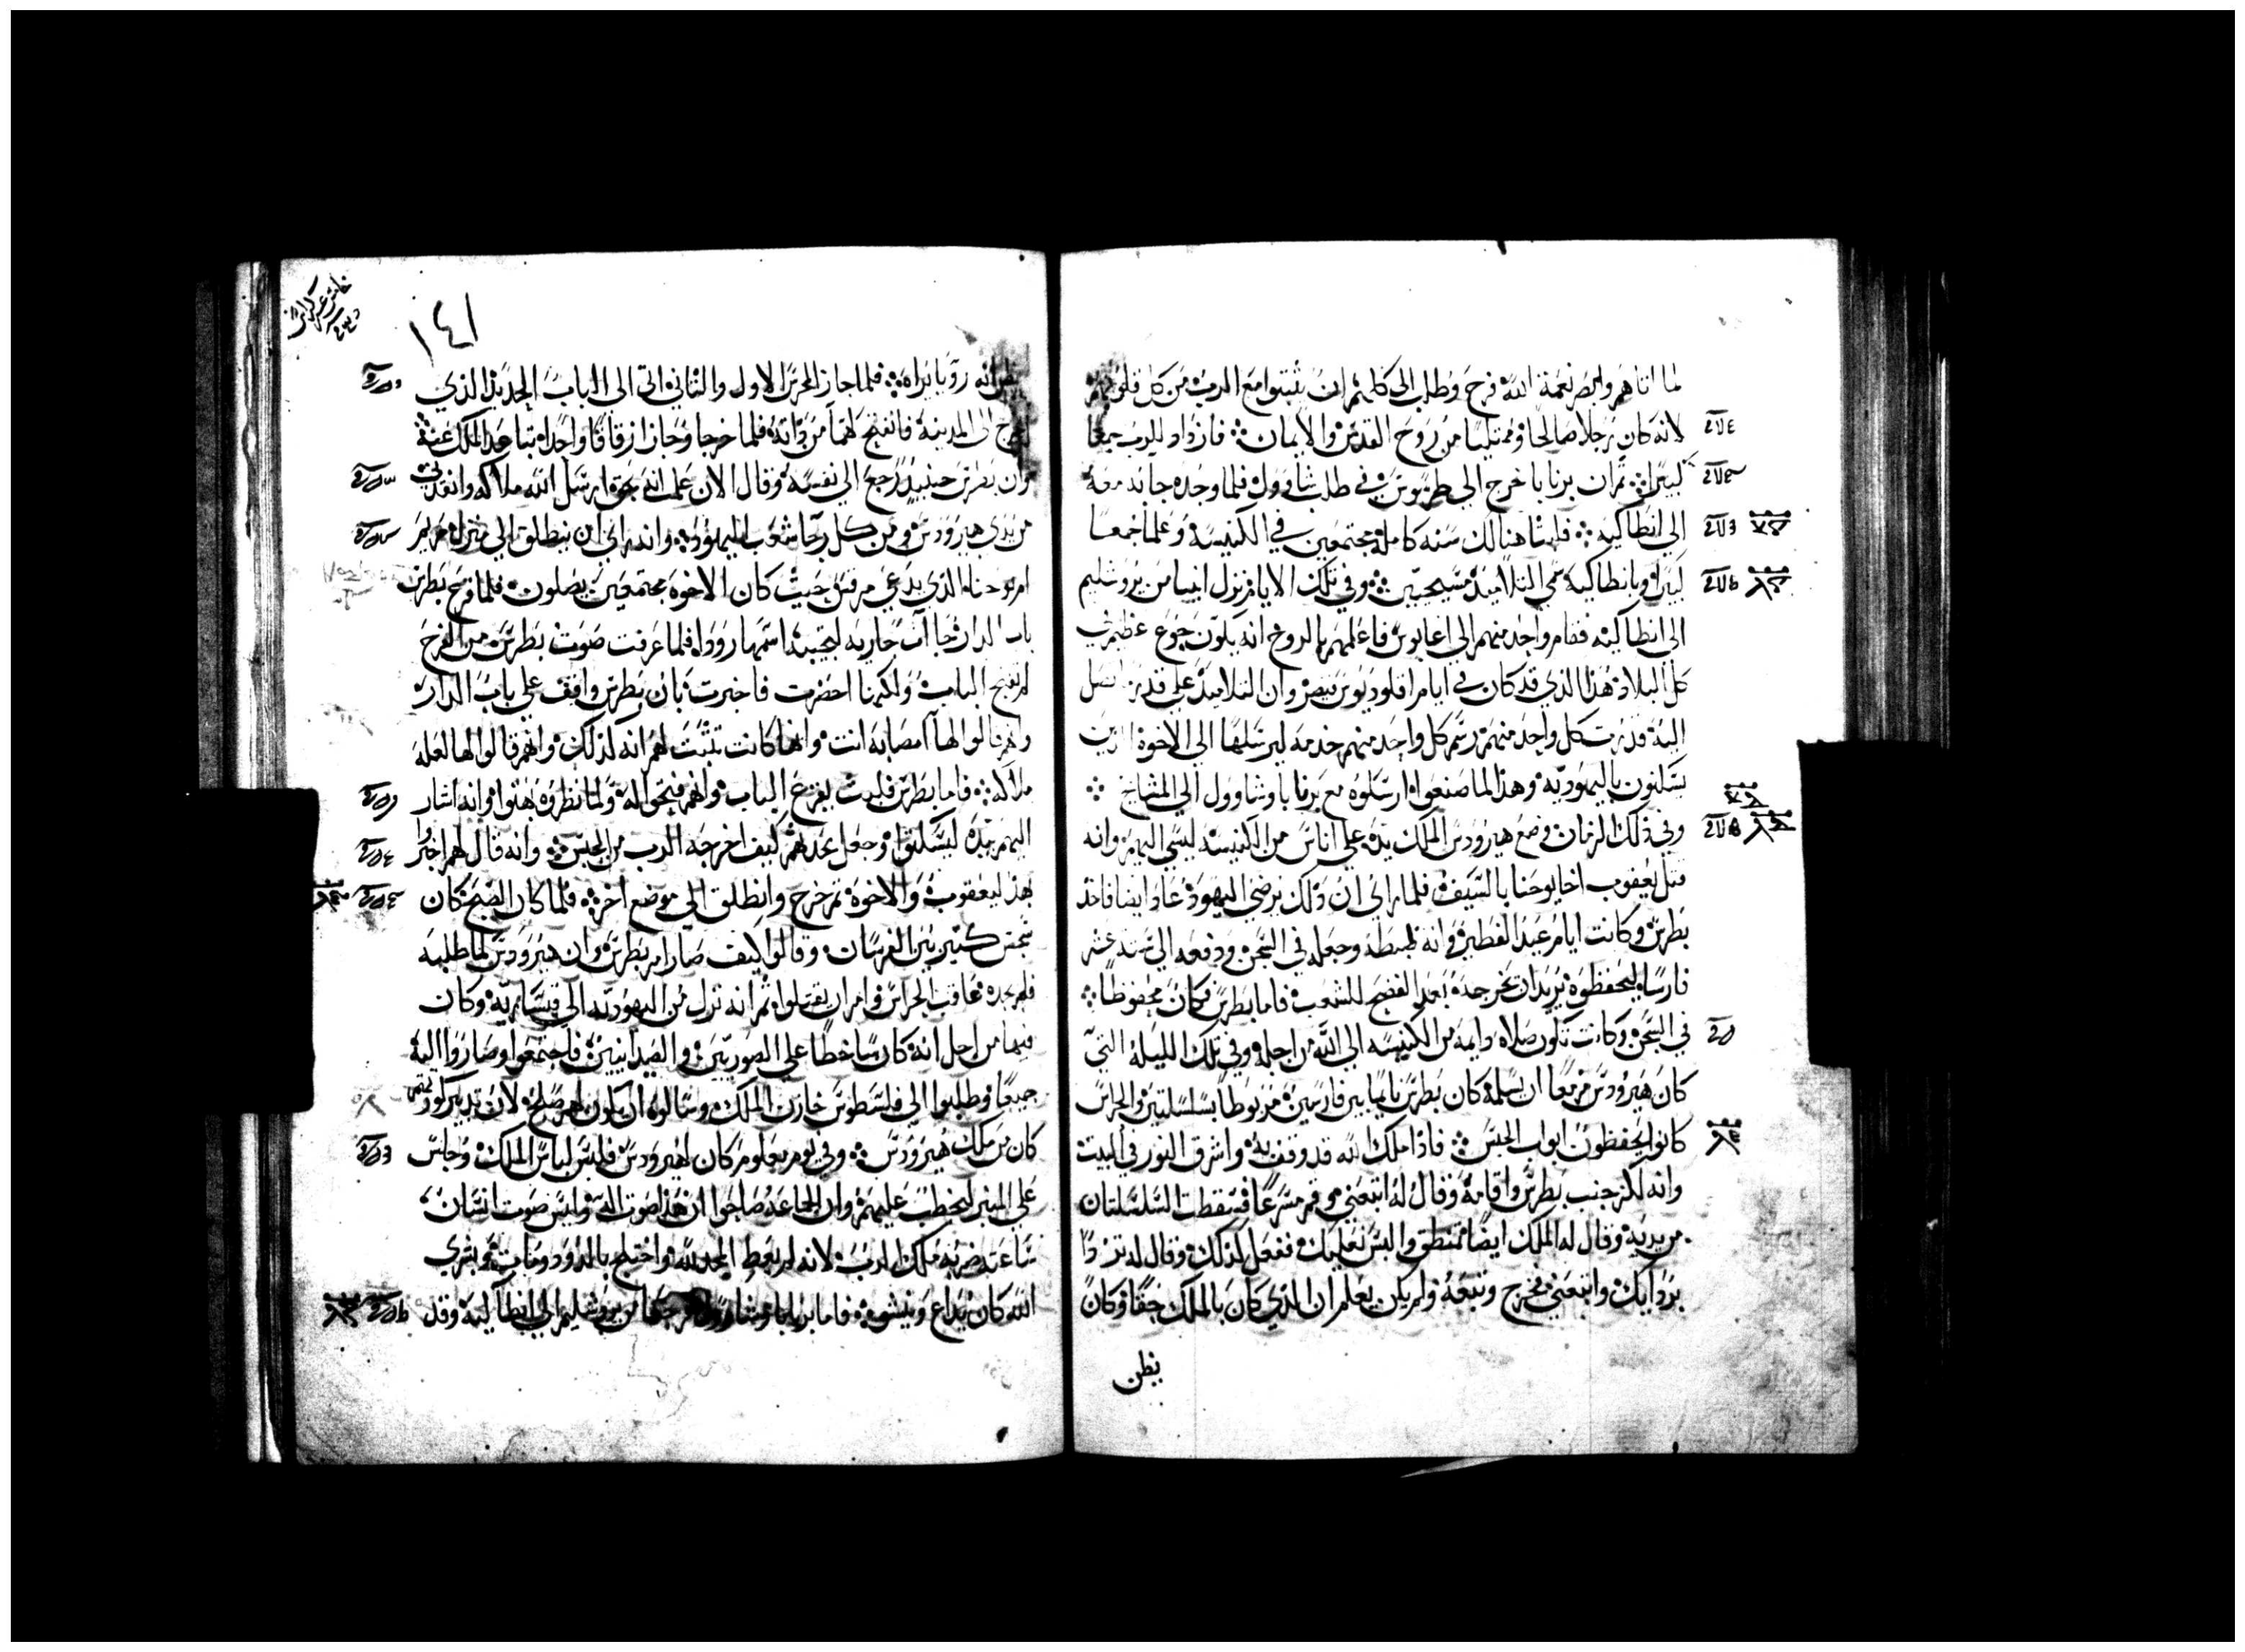 لما اتاهم وابصر نعمة الله فرح وطلب الى كلهم ان يثبتوا مع الرب من كل قلوبهم
لانه كان رجلا صالحا وممتليا من روح القدس والايمان فازداد للرب جمعا
كبيرا ثم ان برنابا خرج الي طرسوس في طلب شاوول فلما وجده جا به معه
الي انطاكيه فلبثا هنالك سنه كاملة مجتمعين في الكنيسة وعلما جمعا
كبيرا وبانطاكية سمي التلاميذ مسيحيين وفي تلك الايام نزل انبيا من يروشليم
الي انطاكيه فقام واحد منهم الي اغابوس فاعلمهم بالروح انه يكون جوع عظيم في
كل البلاد هذا الذي قد كان في ايام اقلوديوس قيصر وان التلاميذ علي قدر
اليه قدرت كل واحد منهم رسم كل واحد منهم خدمه ليرسلها الي الاخوة الذين
يسكنون باليهوديه وهذا لما صنعوا ارسلوه مع برنابا وشاوول الي المشايخ
وفي ذلك الزمان وضع هيرودس الملك يده علي اناس من الكنيسه ليسي اليهم وانه
قتل يعقوب اخا يوحنا بالسيف فلما راي ان ذلك يرضي اليهود عاد ايضا فاخذ
بطرس وكانت ايام عيد الفطير وانه ضبطه وجعله في السجن ودفعه الي ستة عشر
فارسا ليحفظوه يريد ان يخرجه بعد الفصح للشعب فاما بطرس فكان محفوظا
في السجن وكانت تكون صلاه دايمه من الكنيسه الي الله من اجله وفي تلك الليلة التي
كان هيرودس مزمعا ان يسلمه كان بطرس نايما بين فارسين مربوطا بسلسلتين والحراس
كانوا يحفظون ابواب الحبس فاذا ملك الله قد وقف به واشرق النور في البيت
وانه لكز جنب بطرس واقامه وقال له اتبعني وقم مسرعا فسقطت السلسلتان
من يديه وقال له الملك ايضا تمنطق والبس نعليك ففعل كذلك وقال له تردا
بردايك واتبعني فخرج وتبعه ولم يكن يعلم ان الذي كان بالملك حقا وكان
يظن
١٤١
يظن انه رويا يراه فلما جاز الحرس الاول والثاني اتى الى الباب الحديد الذي
يخرج الى المدينة فانفتح لهما من ذاته فلما خرجا وجازا زقاقا واحدا تباعد الملك عنه
وان بطرس حينيذ رجع الي نفسه وقال الان علمت انه بحق ارسل الله ملاكه وانقذني
من يدي هيرودس ومن كل رجا شعب اليهود وانه راي ان ينطلق الي منزل مريم
ام يوحنا الذي يدعي مرقس حيث كان الاخوه مجتمعين يصلون فلما قرع بطرس
باب الدار جات جاريه لتجيبه اسمها رودا فلما عرفت صوت بطرس من الفرح
لم تفتح الباب ولكنها احضرت فاخبرت بان بطرس واقف علي باب الدار
وهم قالوا لها امصابه انت وانها كانت تثبت لهم انه كذلك وانهم قالوا لها لعله
ملاكه فاما بطرس فلبث يقرع الباب وانهم فتحوا له ولما نظروه بهتوا وانه اشار
اليهم بيده ليسكتوا وجعل يحدثهم كيف اخرجه الرب من الحبس وانه قال لهم اخبروا
بهذا يعقوب والاخوة ثم خرج وانطلق الي موضع اخر فلما كان الصبح كان
سجس كثير بين الفرسان وقالوا كيف صار امر بطرس وان هيرودس لما طلبه
فلم يجده عاقب الحراس وامر ان يقتلوا ثم انه نزل من اليهوديه الي قيساريه وكان
فيها من اجل انه كان ساخطا علي الصوريين والصيدانيين فاجتمعوا وصاروا اليه
جميعا وطلبوا الي فلسطوس خازن الملك وسالوه ان يكون لهم صلح لان تدبير كورتهم
كان من ملك هيرودس وفي يوم معلوم كان لهيرودس فلبس لباس الملك وجلس
علي المنبر ليخطب عليهم وان الجماعه صاحوا ان هذا صوت اله وليس صوت انسان
ساعته ضربه ملك الرب لانه لم يعط المجد لله واختلج بالدود ومات وبشري
الله كان يذاع وينشو فاما برنابا وشاوول من يروشليم الي انطاكيه وقد